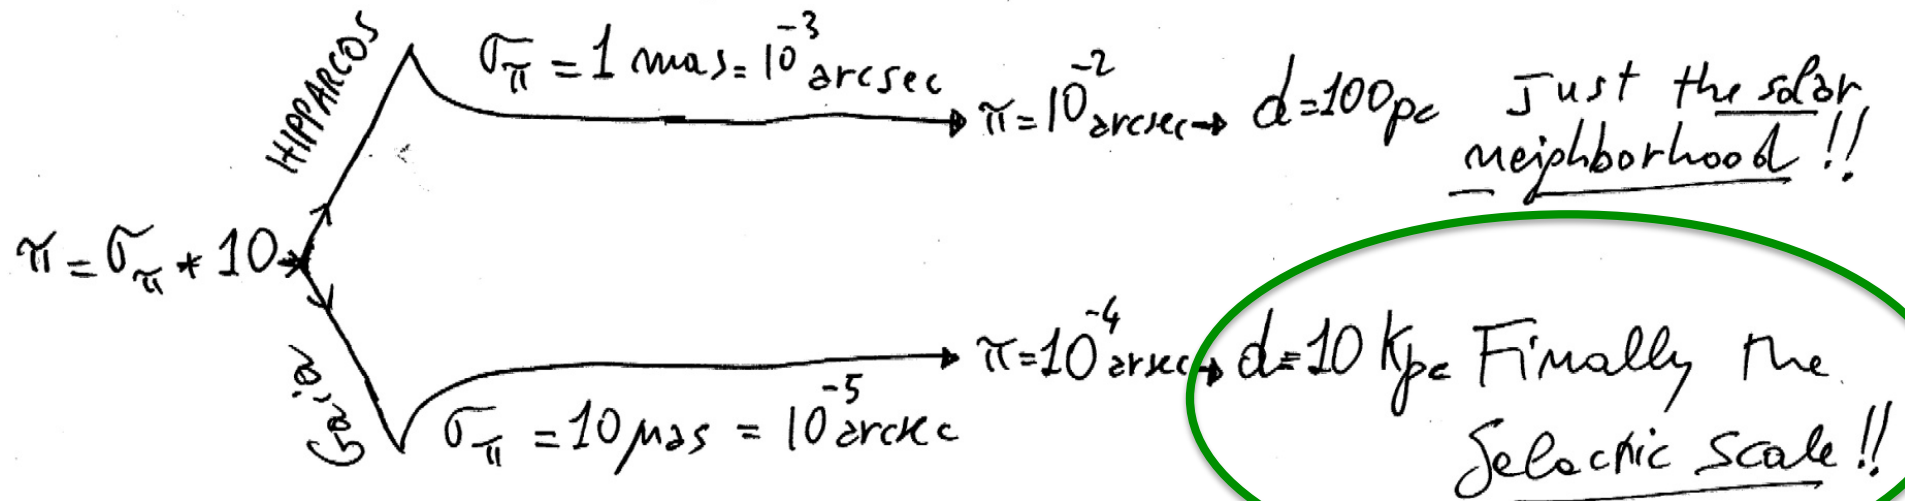 HIPPARCOS
σπ = 1 mas = 10⁻³ arcsec
π = 10⁻² arcsec → d = 100 pc Just the solar
neighborhood !!
π = σπ * 10 →
Gaia
σπ = 10 μas = 10⁻⁵ arcsec
π = 10⁻⁴ arsec → d = 10 Kpc Finally the
Galactic scale !!